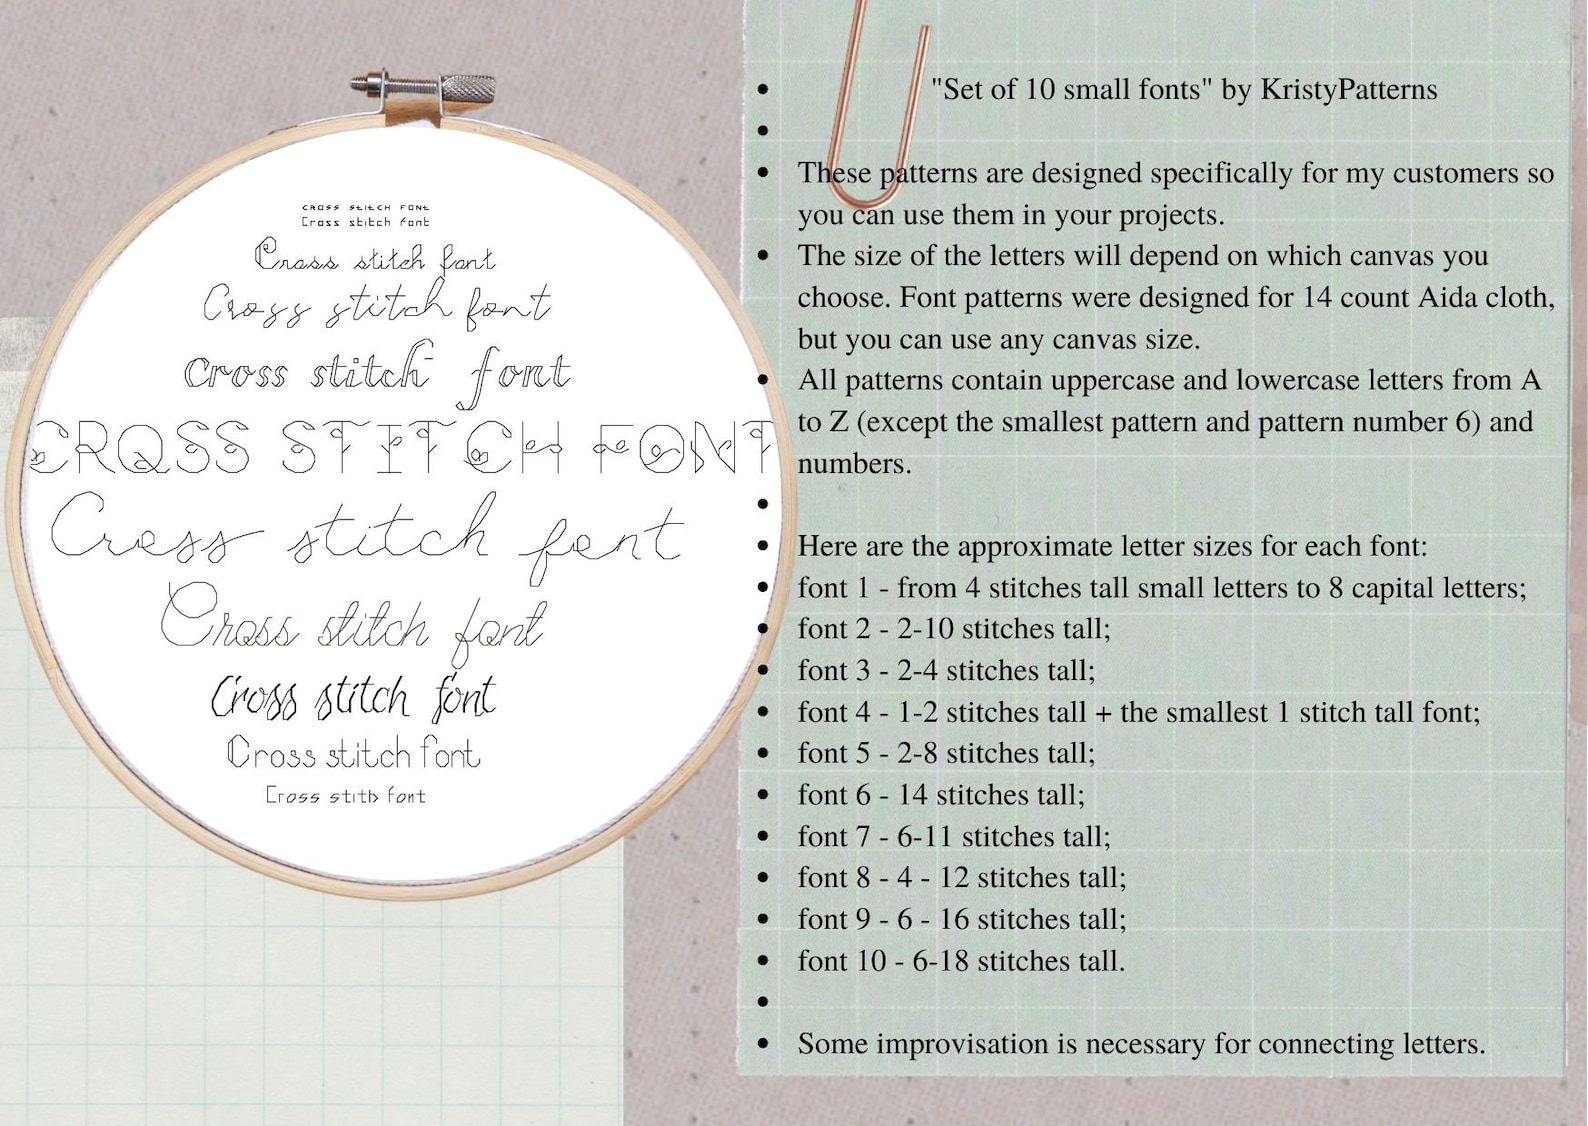 CROSS STITCH FONT
Cross stitch font
Cross stitch font
Cross stitch font
Cross stitch font
CROSS STITCH FONT
Cross stitch font
Cross stitch font
Cross stitch font
Cross stitch font
Cross stitb font
"Set of 10 small fonts" by KristyPatterns
These patterns are designed specifically for my customers so
you can use them in your projects.
The size of the letters will depend on which canvas you
choose. Font patterns were designed for 14 count Aida cloth,
but you can use any canvas size.
All patterns contain uppercase and lowercase letters from A
to Z (except the smallest pattern and pattern number 6) and
numbers.
Here are the approximate letter sizes for each font:
font 1 - from 4 stitches tall small letters to 8 capital letters;
font 2 - 2-10 stitches tall;
font 3 - 2-4 stitches tall;
font 4 - 1-2 stitches tall + the smallest 1 stitch tall font;
font 5 - 2-8 stitches tall;
font 6 - 14 stitches tall;
font 7 - 6-11 stitches tall;
font 8 - 4 - 12 stitches tall;
font 9 - 6 - 16 stitches tall;
font 10 - 6-18 stitches tall.
Some improvisation is necessary for connecting letters.